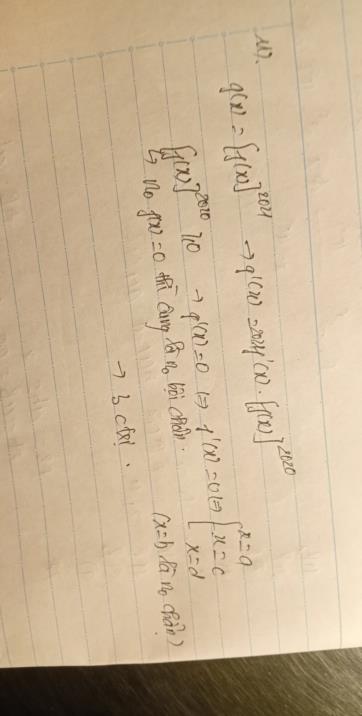 117.
g(x) = [f(x)]^2021 → g'(x) = 2021f'(x).[f(x)]^2020
[f(x)]^2020 ≥ 0 → g'(x) = 0 (=) f'(x) = 0 (=) [x = a
x = c
x = d
↳ no f(x) = 0 thì cũng là no bội chẵn. (x=b là no chẵn)
→ 3 cực trị.